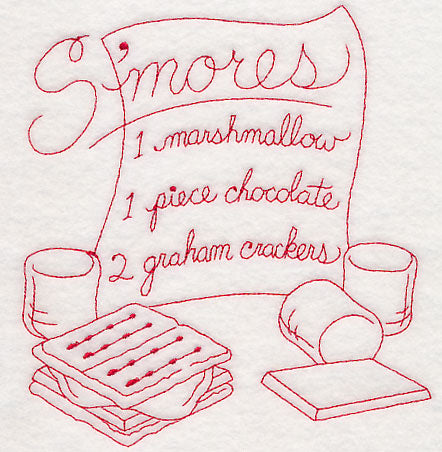 S'mores
1 marshmallow
1 piece chocolate
2 graham crackers